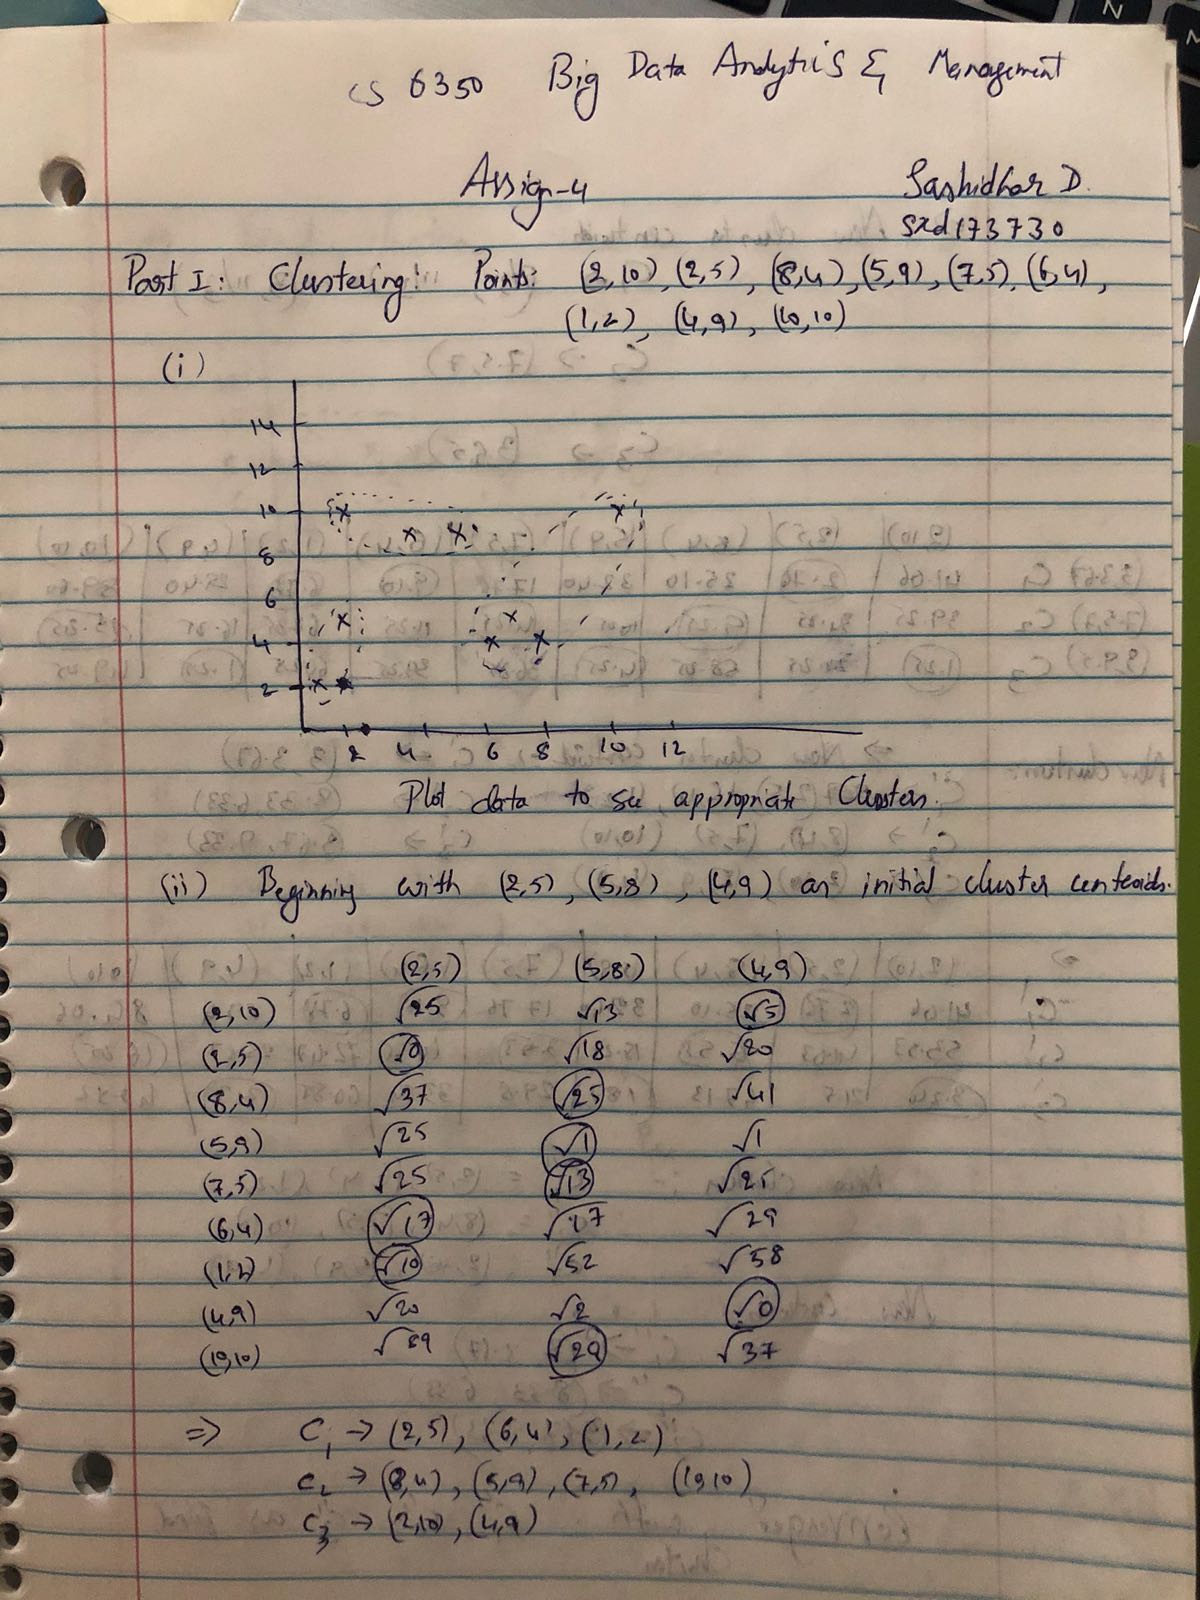 CS 6350 Big Data Analytics & Management
Assign-4 Sashidhar D.
sxd173730
Part I: Clustering: Points: (2,10), (2,5), (8,4), (5,9), (7,5), (6,4),
(1,2), (4,9), (10,10)
(i)
14
12
10
8
6
4
2
2 4 6 8 10 12
Plot data to see appropriate Clusters.
(ii) Beginning with (2,5), (5,8), (4,9) as initial cluster centroids.
(2,5) (5,8) (4,9)
(2,10) √25 √13 √5
(2,5) √0 √18 √20
(8,4) √37 √25 √41
(5,9) √25 √1 √1
(7,5) √25 √13 √25
(6,4) √17 √17 √29
(1,2) √10 √52 √58
(4,9) √20 √2 √0
(10,10) √89 √29 √37
=> C1 → (2,5), (6,4), (1,2)
C2 → (8,4), (5,9), (7,5), (10,10)
C3 → (2,10), (4,9)